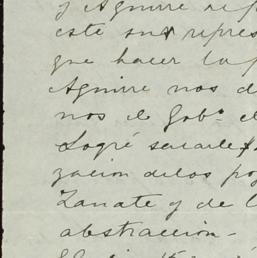 y Aguirre rep
este su repres
que hacer la p
Aguirre nos d
nos el Gobº el
Logré sacarle
zacion delos po
Zarate y de l
abstraccion -